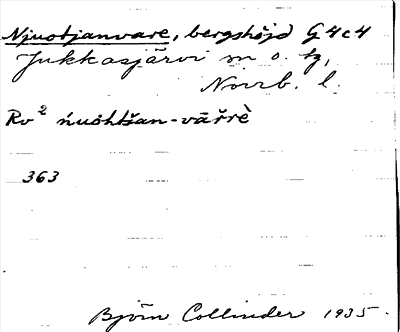 Njuotjanvare, bergshöjd G4c4
Jukkasjärvi m o. tg,
Norrb. l.
Rv² ńuòhtšan-vāřrè
363
Björn Collinder 1935.